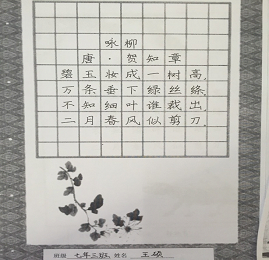 咏柳
唐·贺知章
碧玉妆成一树高,
万条垂下绿丝绦.
不知细叶谁裁出,
二月春风似剪刀.
班级 七年三班 姓名 王硕